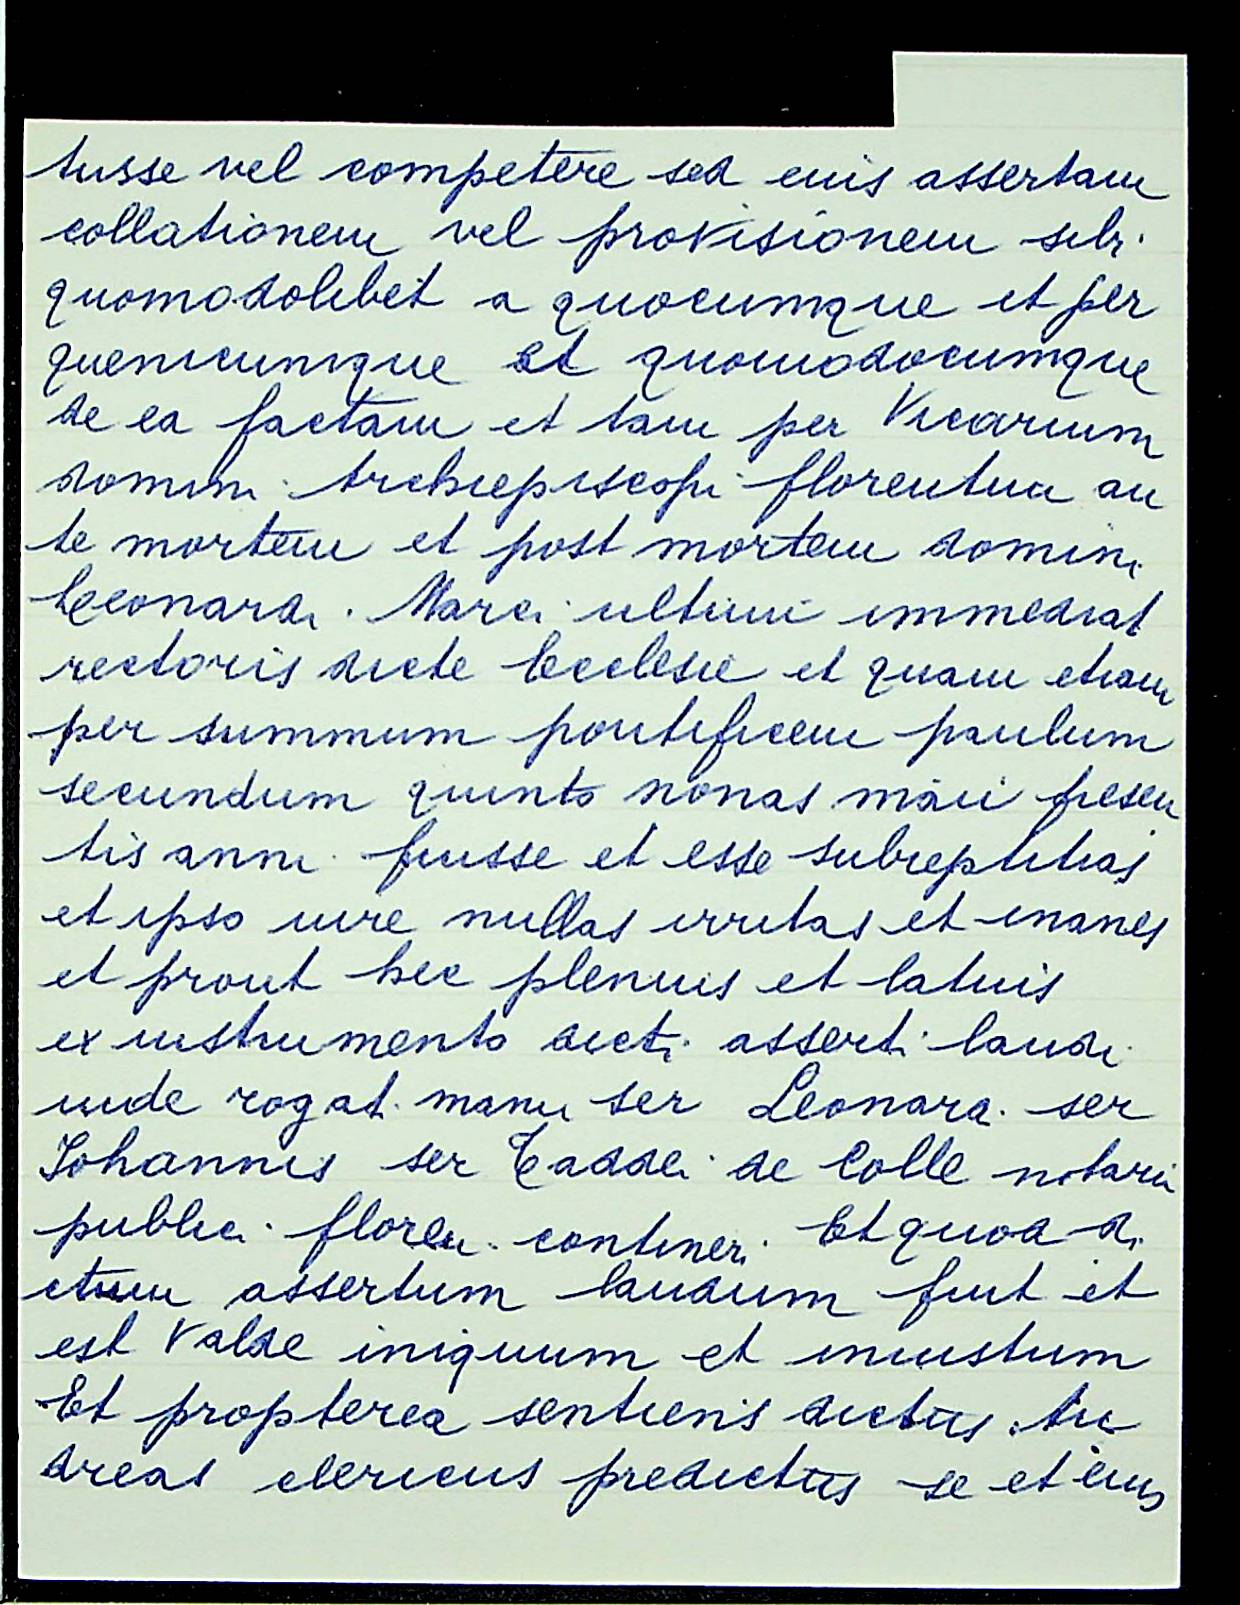 tusse vel competere sed eius assertam
collationem vel provisionem sibi
quomodolibet a quocumque et per
quemcumque et quomodocumque
de ea factam et tam per Vicarium
domini Archiepiscopi florentini an
te mortem et post mortem domini
Leonardi Marci ultimi immediat
rectoris dicte Ecclesie et quam etiam
per summum pontificem paulum
secundum quinto nonas maii presen
tis anni fuisse et esse subreptitias
et ipso iure nullas irritas et inanes
et prout hec plenius et latius
ex instrumento dicti asserti laudi
inde rogat. manu ser Leonardi ser
Iohannis ser Taddei de Colle notarii
publici floren. contineri. Et quod di
ctum assertum laudum fuit et
est valde iniquum et iniustum
Et propterea sentiens dictus An
dreas clericus predictus se et eius